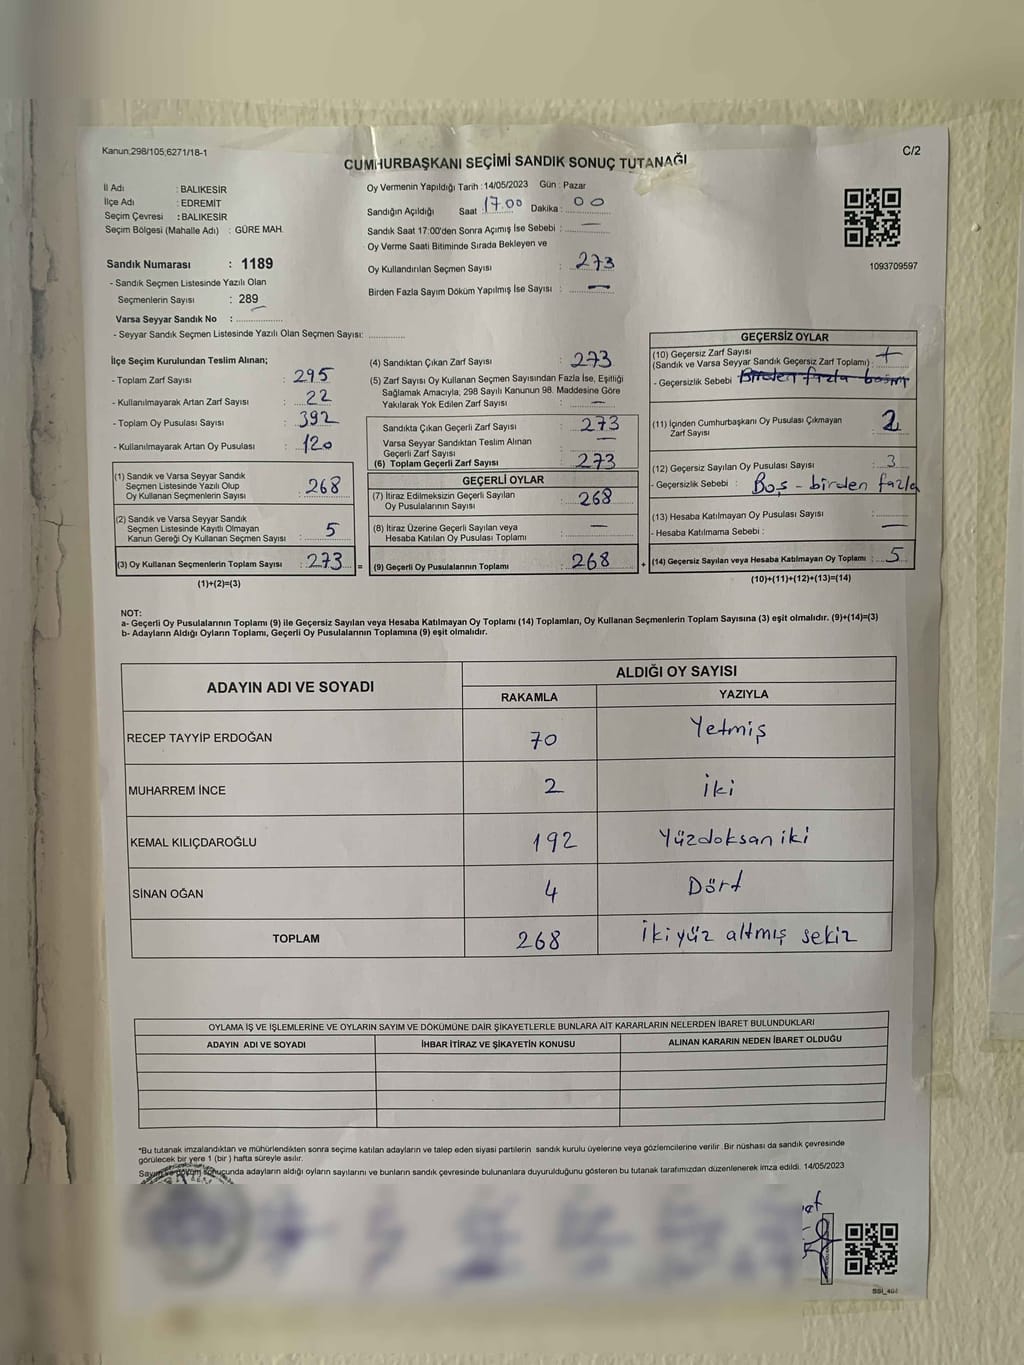 Kanun;298/105;6271/18-1
C/2
CUMHURBAŞKANI SEÇİMİ SANDIK SONUÇ TUTANAĞI
İl Adı : BALIKESİR
İlçe Adı : EDREMİT
Seçim Çevresi : BALIKESİR
Seçim Bölgesi (Mahalle Adı) : GÜRE MAH.
Sandık Numarası : 1189
- Sandık Seçmen Listesinde Yazılı Olan
Seçmenlerin Sayısı : 289
Varsa Seyyar Sandık No :
- Seyyar Sandık Seçmen Listesinde Yazılı Olan Seçmen Sayısı:
Oy Vermenin Yapıldığı Tarih : 14/05/2023 Gün : Pazar
Sandığın Açıldığı Saat : 17.00 Dakika : 00
Sandık Saat 17:00'den Sonra Açımış İse Sebebi : —
Oy Verme Saati Bitiminde Sırada Bekleyen ve
Oy Kullandırılan Seçmen Sayısı : 273
Birden Fazla Sayım Döküm Yapılmış İse Sayısı : —
1093709597
İlçe Seçim Kurulundan Teslim Alınan;
- Toplam Zarf Sayısı : 295
- Kullanılmayarak Artan Zarf Sayısı : 22
- Toplam Oy Pusulası Sayısı : 392
- Kullanılmayarak Artan Oy Pusulası : 120
(1) Sandık ve Varsa Seyyar Sandık
Seçmen Listesinde Yazılı Olup
Oy Kullanan Seçmenlerin Sayısı : 268
(2) Sandık ve Varsa Seyyar Sandık
Seçmen Listesinde Kayıtlı Olmayan
Kanun Gereği Oy Kullanan Seçmen Sayısı : 5
(3) Oy Kullanan Seçmenlerin Toplam Sayısı : 273 =
(1)+(2)=(3)
(4) Sandıktan Çıkan Zarf Sayısı : 273
(5) Zarf Sayısı Oy Kullanan Seçmen Sayısından Fazla İse, Eşitliği
Sağlamak Amacıyla, 298 Sayılı Kanunun 98. Maddesine Göre
Yakılarak Yok Edilen Zarf Sayısı : —
Sandıkta Çıkan Geçerli Zarf Sayısı : 273
Varsa Seyyar Sandıktan Teslim Alınan
Geçerli Zarf Sayısı : —
(6) Toplam Geçerli Zarf Sayısı : 273
GEÇERLİ OYLAR
(7) İtiraz Edilmeksizin Geçerli Sayılan
Oy Pusulalarının Sayısı : 268
(8) İtiraz Üzerine Geçerli Sayılan veya
Hesaba Katılan Oy Pusulası Toplamı : —
(9) Geçerli Oy Pusulalarının Toplamı : 268 +
GEÇERSİZ OYLAR
(10) Geçersiz Zarf Sayısı
(Sandık ve Varsa Seyyar Sandık Geçersiz Zarf Toplamı) :
- Geçersizlik Sebebi : Birden fazla
(11) İçinden Cumhurbaşkanı Oy Pusulası Çıkmayan
Zarf Sayısı : 2
(12) Geçersiz Sayılan Oy Pusulası Sayısı : 3
- Geçersizlik Sebebi : Boş - birden fazla
(13) Hesaba Katılmayan Oy Pusulası Sayısı :
- Hesaba Katılmama Sebebi : —
(14) Geçersiz Sayılan veya Hesaba Katılmayan Oy Toplamı : 5
(10)+(11)+(12)+(13)=(14)
NOT:
a- Geçerli Oy Pusulalarının Toplamı (9) ile Geçersiz Sayılan veya Hesaba Katılmayan Oy Toplamı (14) Toplamları, Oy Kullanan Seçmenlerin Toplam Sayısına (3) eşit olmalıdır. (9)+(14)=(3)
b- Adayların Aldığı Oyların Toplamı, Geçerli Oy Pusulalarının Toplamına (9) eşit olmalıdır.
ADAYIN ADI VE SOYADI
ALDIĞI OY SAYISI
RAKAMLA YAZIYLA
RECEP TAYYİP ERDOĞAN 70 Yetmiş
MUHARREM İNCE 2 İki
KEMAL KILIÇDAROĞLU 192 Yüzdoksan iki
SİNAN OĞAN 4 Dört
TOPLAM 268 İkiyüz altmış sekiz
OYLAMA İŞ VE İŞLEMLERİNE VE OYLARIN SAYIM VE DÖKÜMÜNE DAİR ŞİKAYETLERLE BUNLARA AİT KARARLARIN NELERDEN İBARET BULUNDUKLARI
ADAYIN ADI VE SOYADI İHBAR İTİRAZ VE ŞİKAYETİN KONUSU ALINAN KARARIN NEDEN İBARET OLDUĞU
*Bu tutanak imzalandıktan ve mühürlendikten sonra seçime katılan adayların ve talep eden siyasi partilerin sandık kurulu üyelerine veya gözlemcilerine verilir .Bir nüshası da sandık çevresinde
görülecek bir yere 1 (bir ) hafta süreyle asılır.
Sayım ve döküm sonucunda adayların aldığı oyların sayılarını ve bunların sandık çevresinde bulunanlara duyurulduğunu gösteren bu tutanak tarafımızdan düzenlenerek imza edildi. 14/05/2023